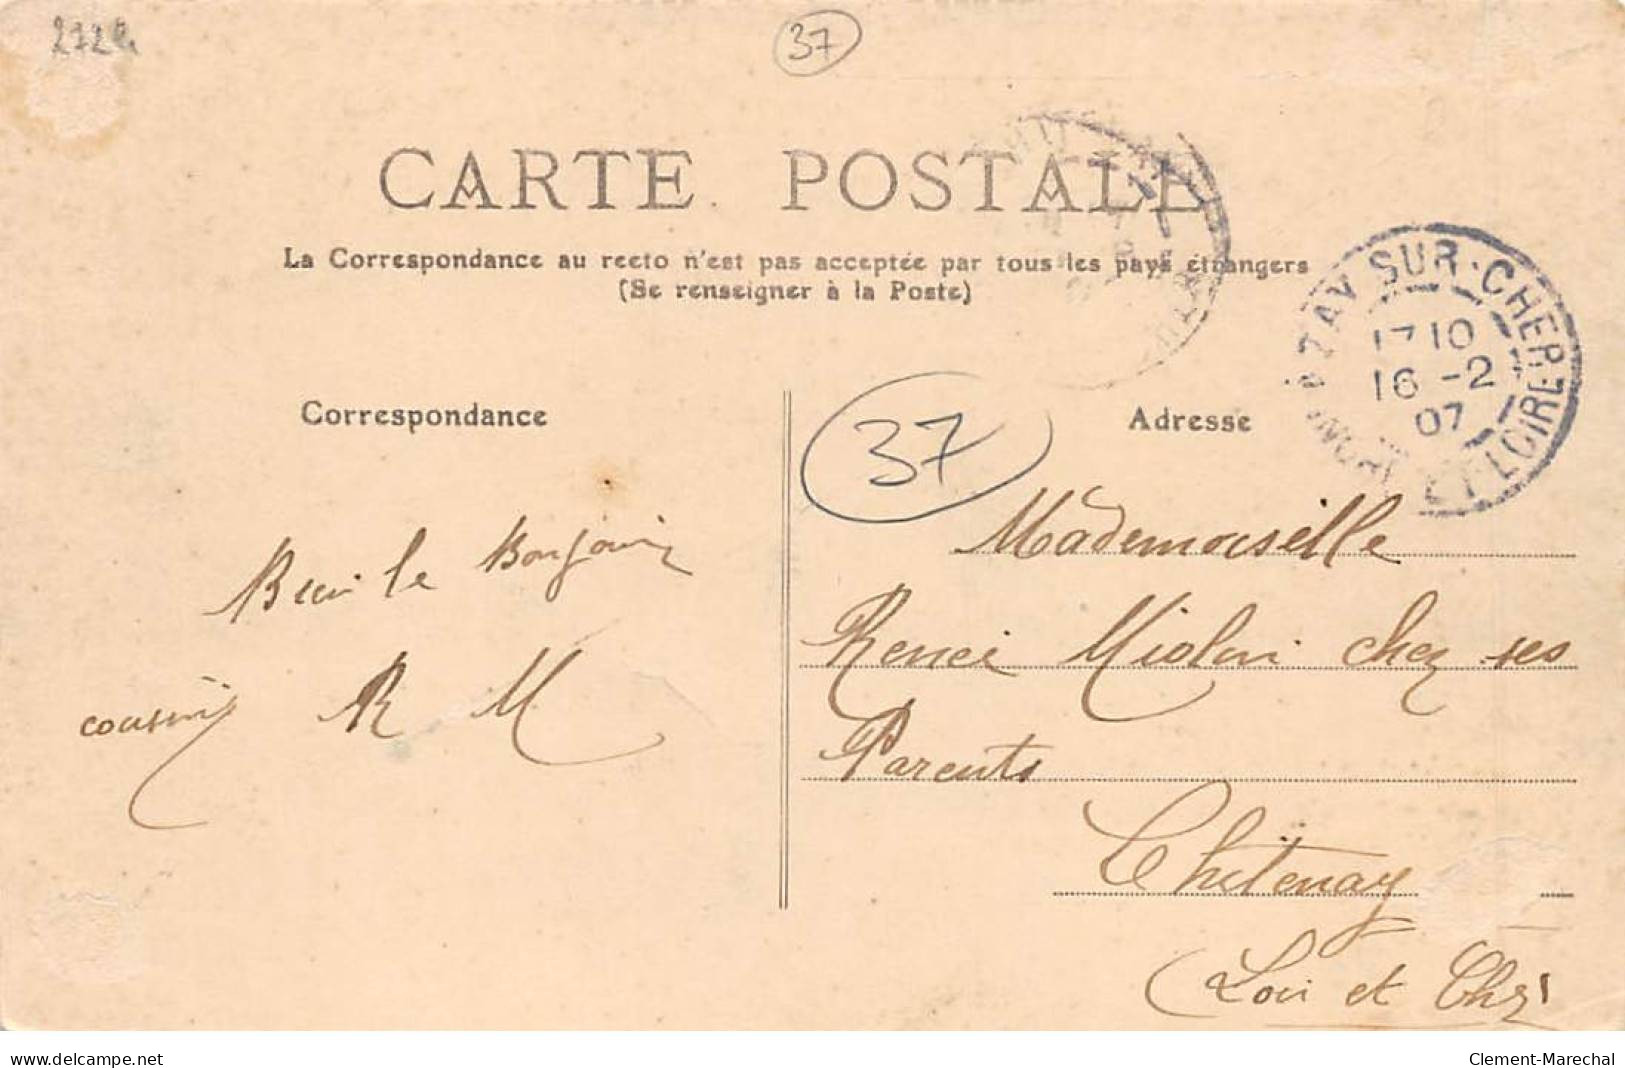 37
CARTE POSTALE
La Correspondance au recto n'est pas acceptée par tous les pays étrangers
(Se renseigner à la Poste)
AZAY SUR-CHER
17 10
16 -2
07
ET LOIRE
Correspondance
37
Adresse
le Bonjour
cousin
R M
Mademoiselle
Renée chez ses
Parents
Chitenay
(Loir et Cher
www.delcampe.net
Clement-Marechal